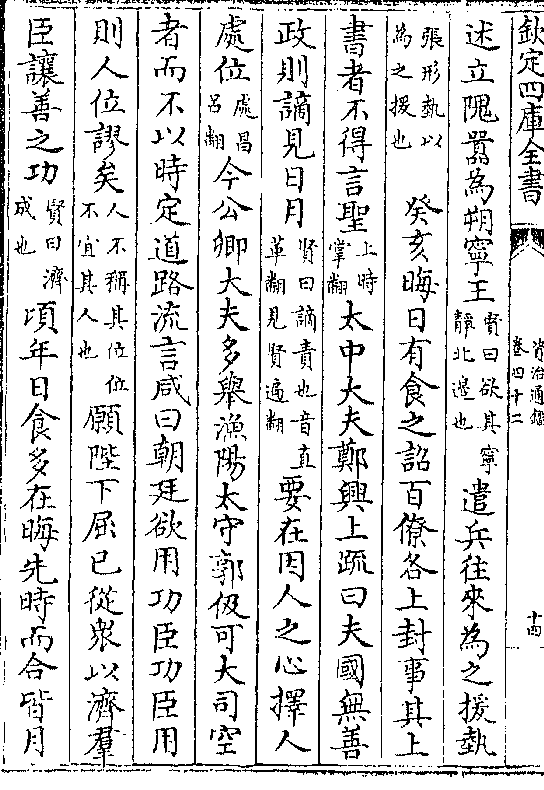 欽定四庫全書
資治通鑑
卷四十二
十四
述立隗囂為朔寧王賢曰欲其寧靜北邊也遣兵往來為之援埶
張形埶以為之援也癸亥晦日有食之詔百僚各上封事其上
書者不得言聖上時掌翻太中大夫鄭興上疏曰夫國無善
政則謫見日月賢曰謫責也音直革翻見賢遍翻要在因人之心擇人
處位處昌呂翻今公卿大夫多舉漁陽太守郭伋可大司空
者而不以時定道路流言咸曰朝廷欲用功臣功臣用
則人位謬矣人不稱其位位不宜其人也願陛下屈已從衆以濟羣
臣讓善之功賢曰濟成也頃年日食多在晦先時而合皆月